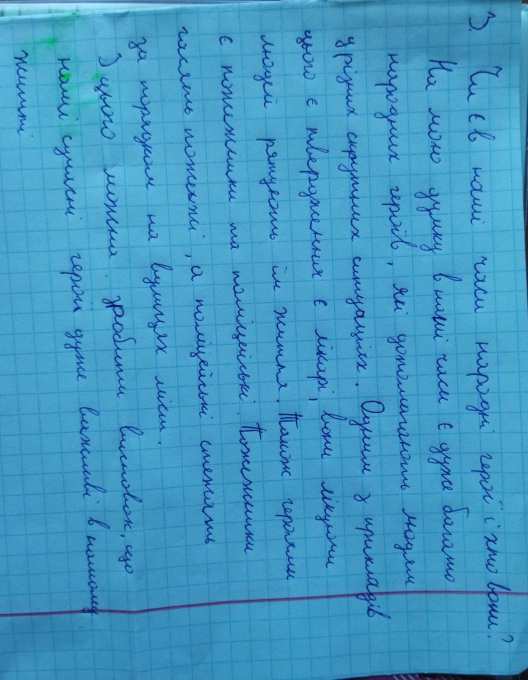 3. Чи є в наші часи народні герої і хто вони?
На мою думку в наші часи є дуже багато
народних героїв, які допомагають людям
у різних скрутних ситуаціях. Одним з прикладів
цього є твердження є лікарі, вони лікуючи
людей рятують їм життя. Також героями
є пожежники та поліцейські. Пожежники
гасять пожежі, а поліцейські стежать
за порядком на вулицях міст.
З цього можна зробити висновок, що
наші сучасні герої дуже важливі в нашому
житті